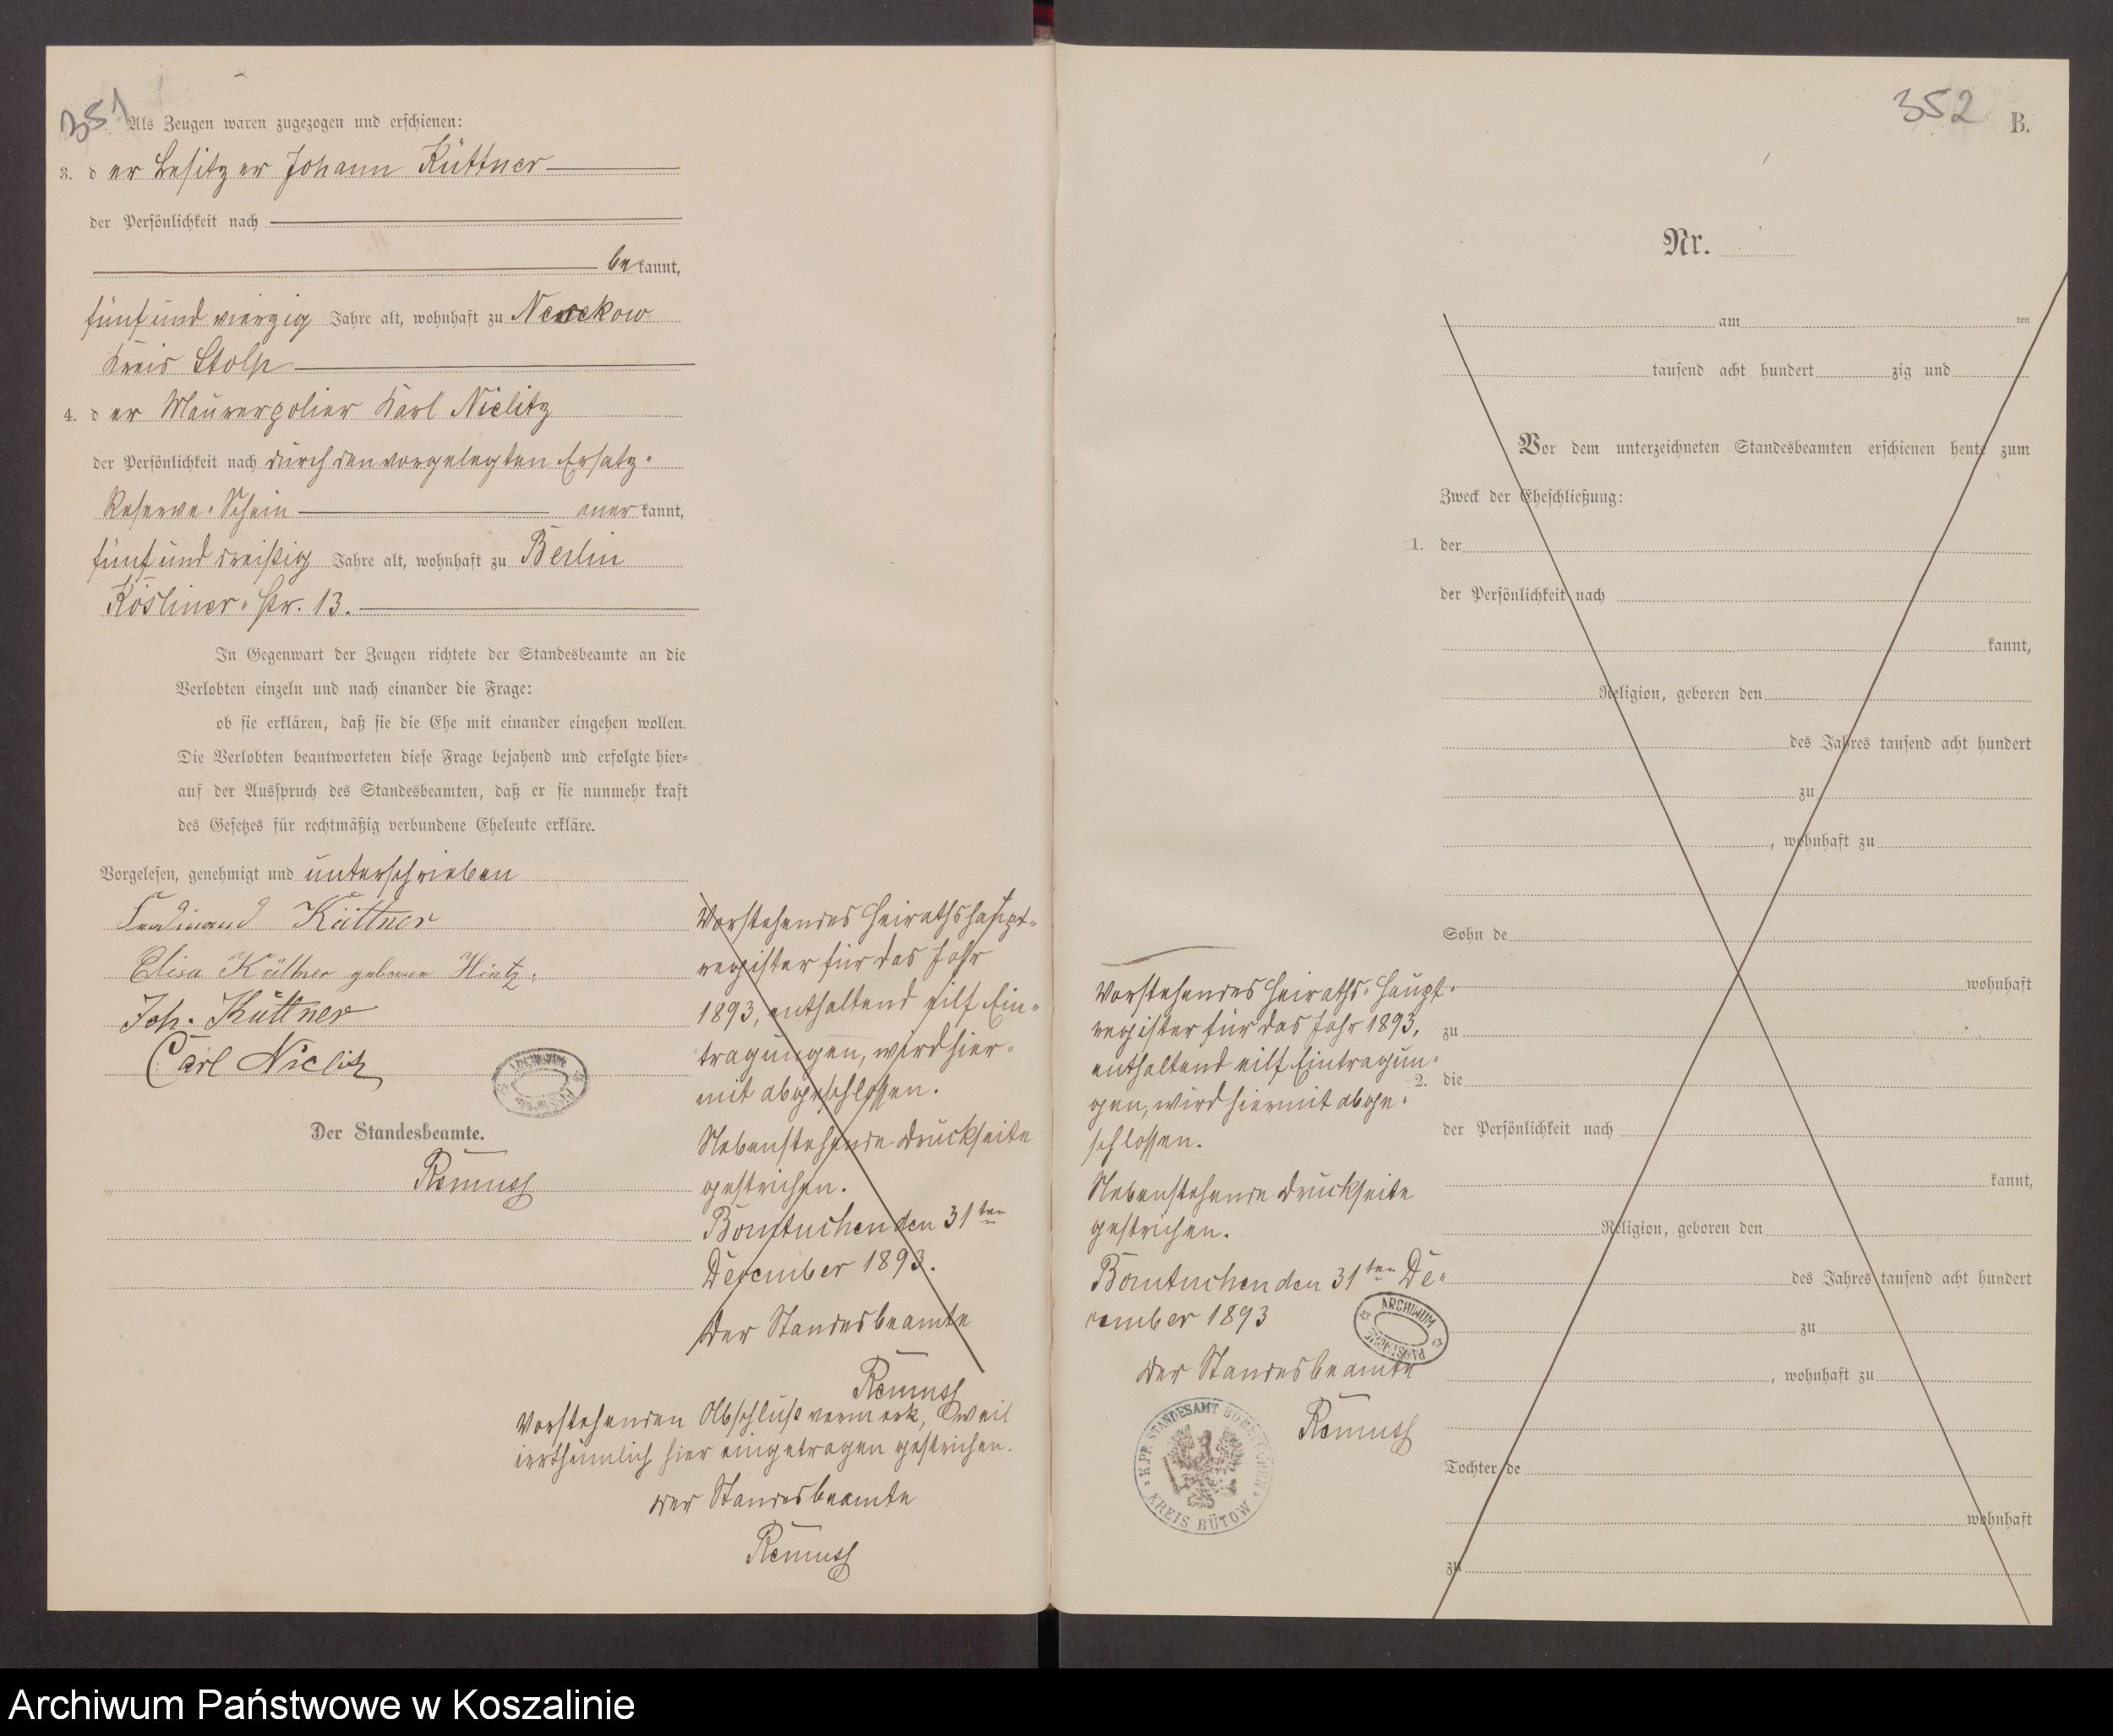 351
Als Zeugen waren zugezogen und erschienen:
3. d er Besitzer Johann Küttner
der Persönlichkeit nach
be kannt,
fünf und vierzig Jahre alt, wohnhaft zu
Kreis Stolp
4. d er Maurerpolier Karl Nielitz
der Persönlichkeit nach durch den vorgelegten Ersatz-
Reserve-Schein aner kannt,
fünf und dreißig Jahre alt, wohnhaft zu Berlin
Kösliner-Str. 13.
In Gegenwart der Zeugen richtete der Standesbeamte an die
Verlobten einzeln und nach einander die Frage:
ob sie erklären, daß sie die Ehe mit einander eingehen wollen.
Die Verlobten beantworteten diese Frage bejahend und erfolgte hier-
auf der Ausspruch des Standesbeamten, daß er sie nunmehr kraft
des Gesetzes für rechtmäßig verbundene Eheleute erkläre.
Vorgelesen, genehmigt und unterschrieben
Ferdinand Küttner
Elisa Küttner geborene Hintz.
Joh. Küttner
Carl Nielitz
ARCHIWUM
Der Standesbeamte.
Remuss
Vorstehendes Heirathshaupt-
register für das Jahr
1893, enthaltend eilf Ein-
tragungen, wird hier-
mit abgeschlossen.
Nebenstehende Druckseite
gestrichen.
Borntuchen den 31ten
December 1893.
Der Standesbeamte
Remuss
Vorstehenden Abschlußvermerk, weil
irrthümlich hier eingetragen gestrichen.
Der Standesbeamte
Remuss
352
B.
Nr.
am ten
tausend acht hundert zig und
Vor dem unterzeichneten Standesbeamten erschienen heute zum
Zweck der Eheschließung:
1. der
der Persönlichkeit nach
kannt,
Religion, geboren den
des Jahres tausend acht hundert
zu
, wohnhaft zu
Sohn de
wohnhaft
zu
2. die
der Persönlichkeit nach
kannt,
Religion, geboren den
des Jahres tausend acht hundert
zu
, wohnhaft zu
Tochter de
wohnhaft
zu
Vorstehendes Heiraths-Haupt-
register für das Jahr 1893,
enthaltend eilf Eintragun-
gen, wird hiermit abge-
schlossen.
Nebenstehende Druckseite
gestrichen.
Borntuchen den 31ten De-
cember 1893
ARCHIWUM
Der Standesbeamte
Remuss
K. PR. STANDESAMT BORNTUCHEN
KREIS BÜTOW
Archiwum Państwowe w Koszalinie